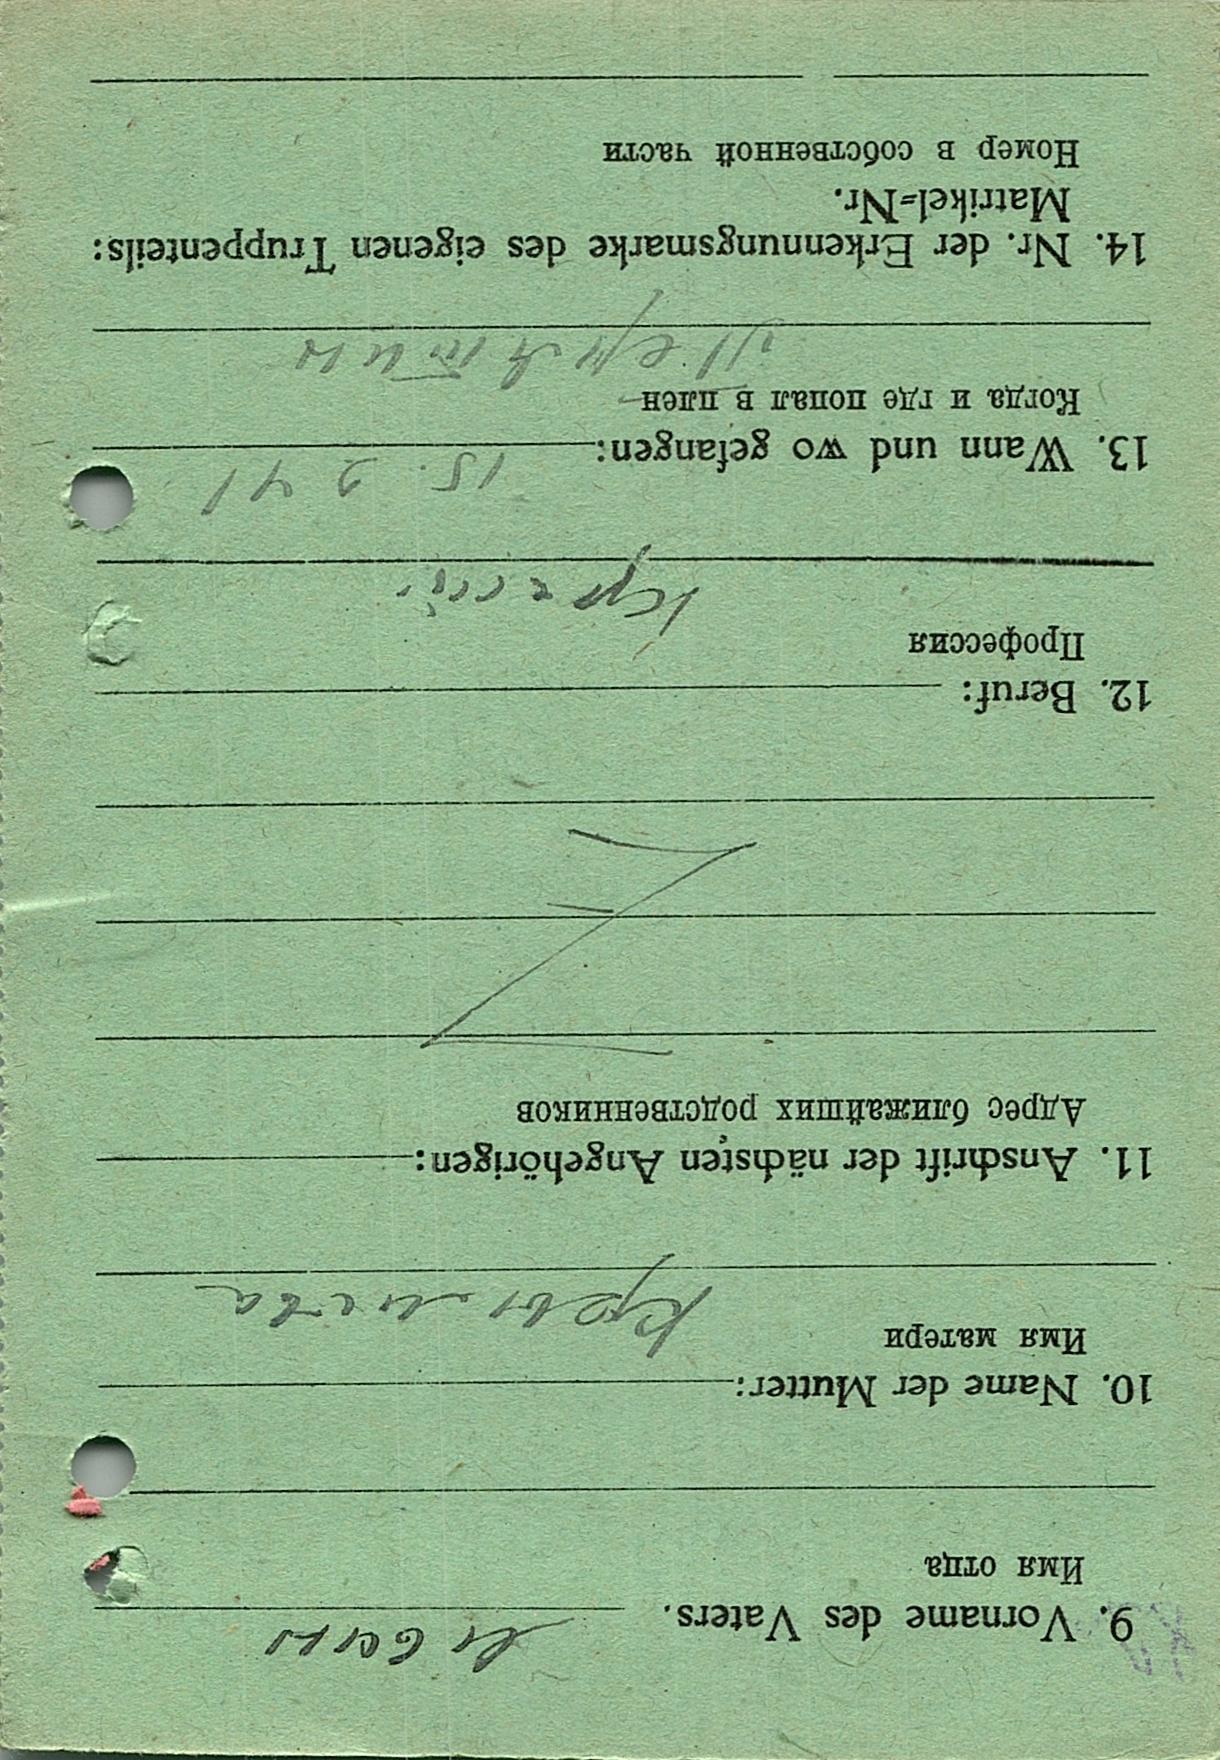 9. Vorname des Vaters. Иван
Имя отца
10. Name der Mutter:
Имя матери
11. Anschrift der nächsten Angehörigen:
Адрес ближайших родственников
12. Beruf:
Профессия
13. Wann und wo gefangen: 15. 9 41
Когда и где попал в плен
Перятин
14. Nr. der Erkennungsmarke des eigenen Truppenteils:
Matrikel=Nr.
Номер в собственной части